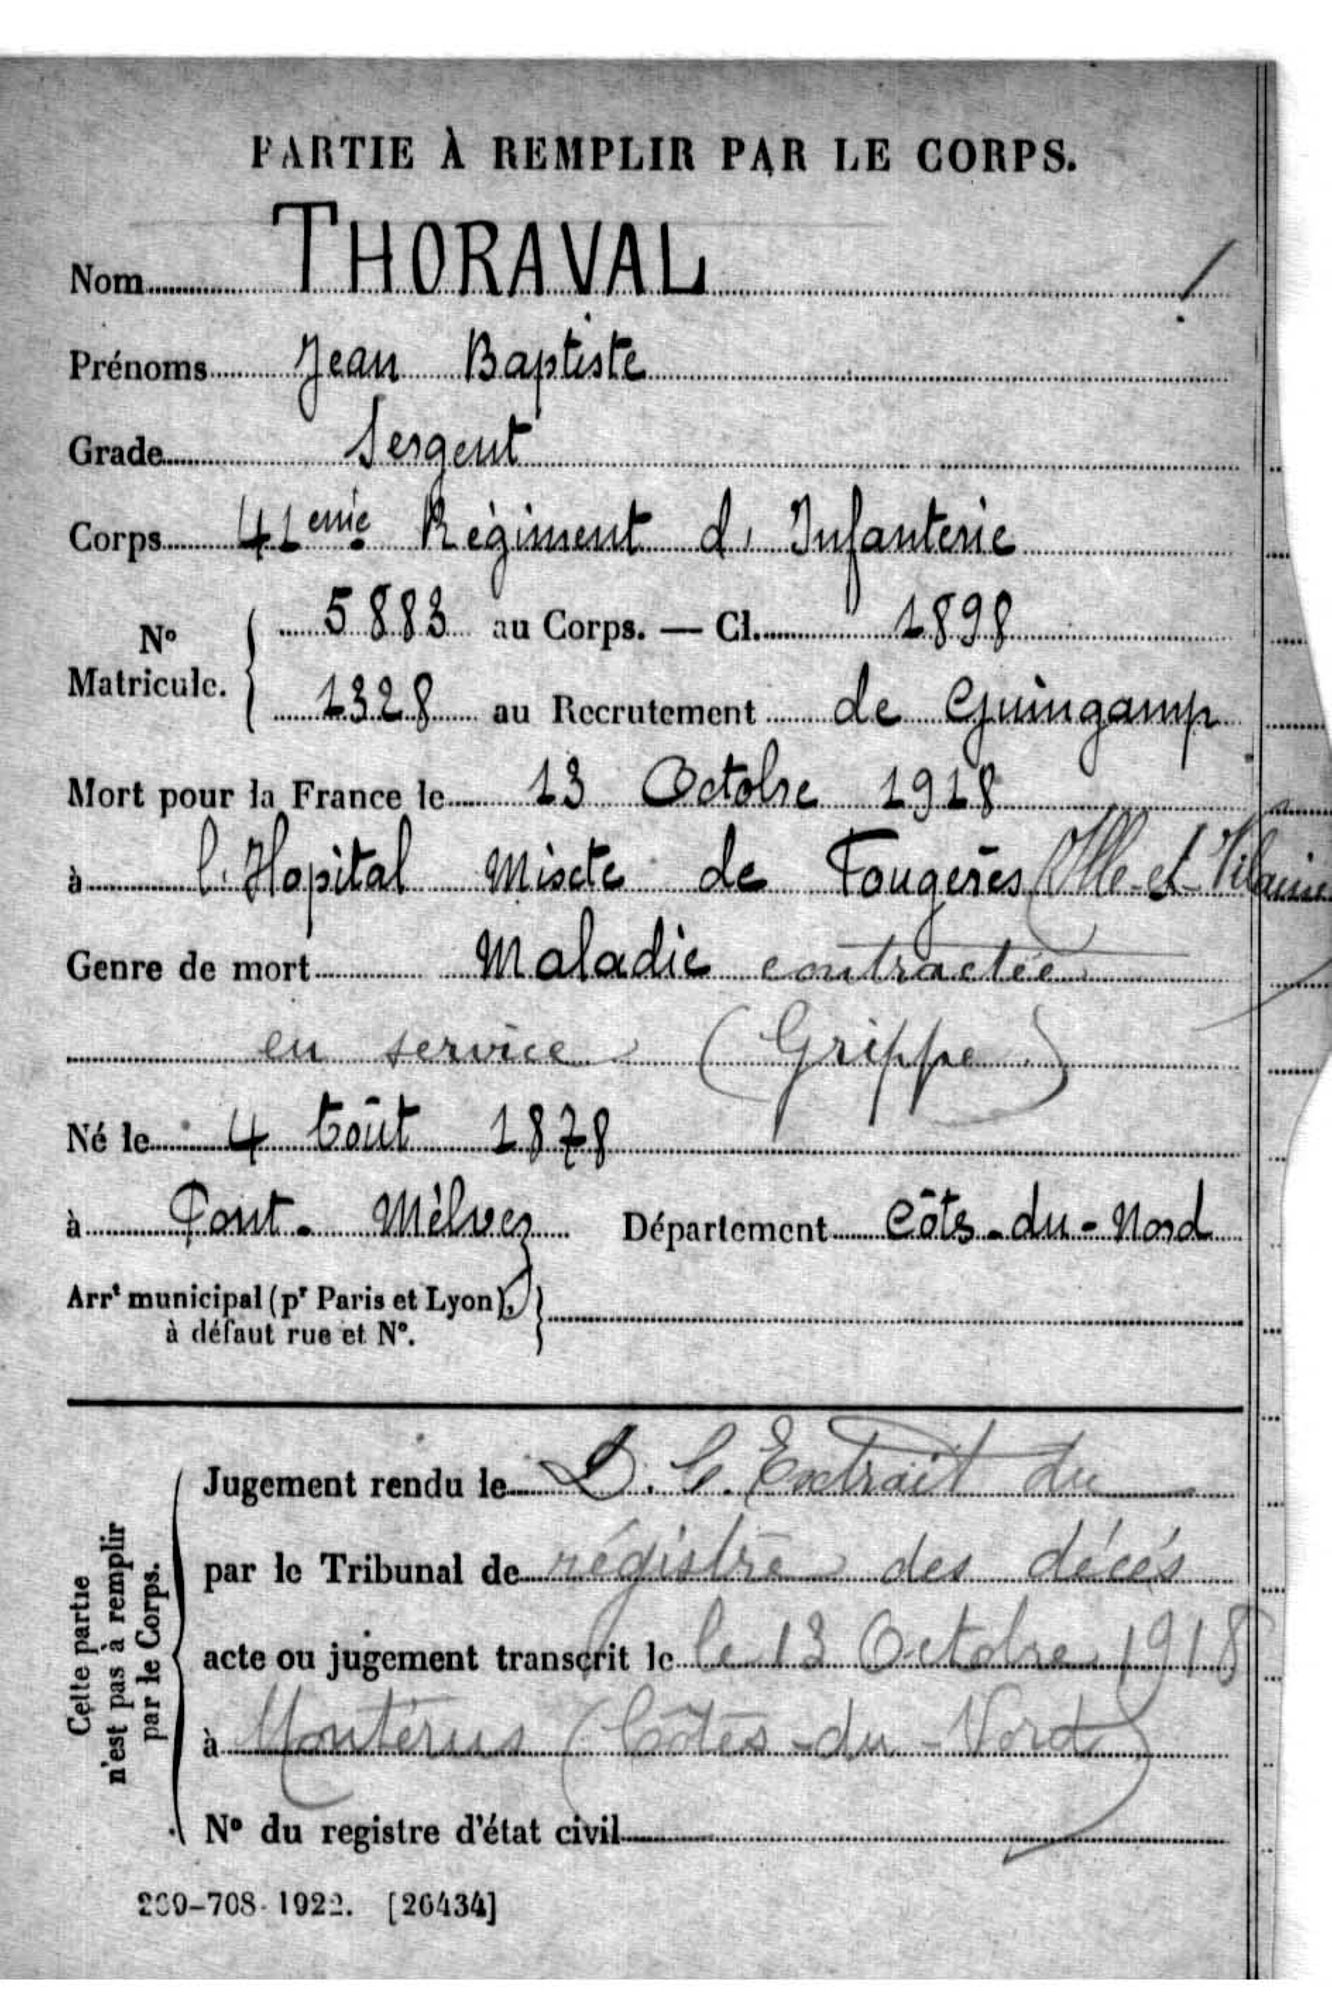 PARTIE À REMPLIR PAR LE CORPS.
Nom THORAVAL
Prénoms Jean Baptiste
Grade Sergent
Corps 41eme Régiment d' Infanterie
N° Matricule. { 5883 au Corps. — Cl. 1898
1328 au Recrutement de Guingamp
Mort pour la France le 13 Octobre 1918
à l'Hopital Miscte de Fougères (Ille-et-Vilaine)
Genre de mort Maladie contractée
en service (Grippe)
Né le 4 Août 1878
à Pont-Mélvez Département Côts-du-Nord
Arrt municipal (pr Paris et Lyon), }
à défaut rue et N°.
Cette partie
n'est pas à remplir
par le Corps.
Jugement rendu le D. C. Extrait du
par le Tribunal de régistre des décés
acte ou jugement transcrit le le 13 Octobre 1918
à (Côtes-du-Nord)
N° du registre d'état civil
269-708-1922. [26434]